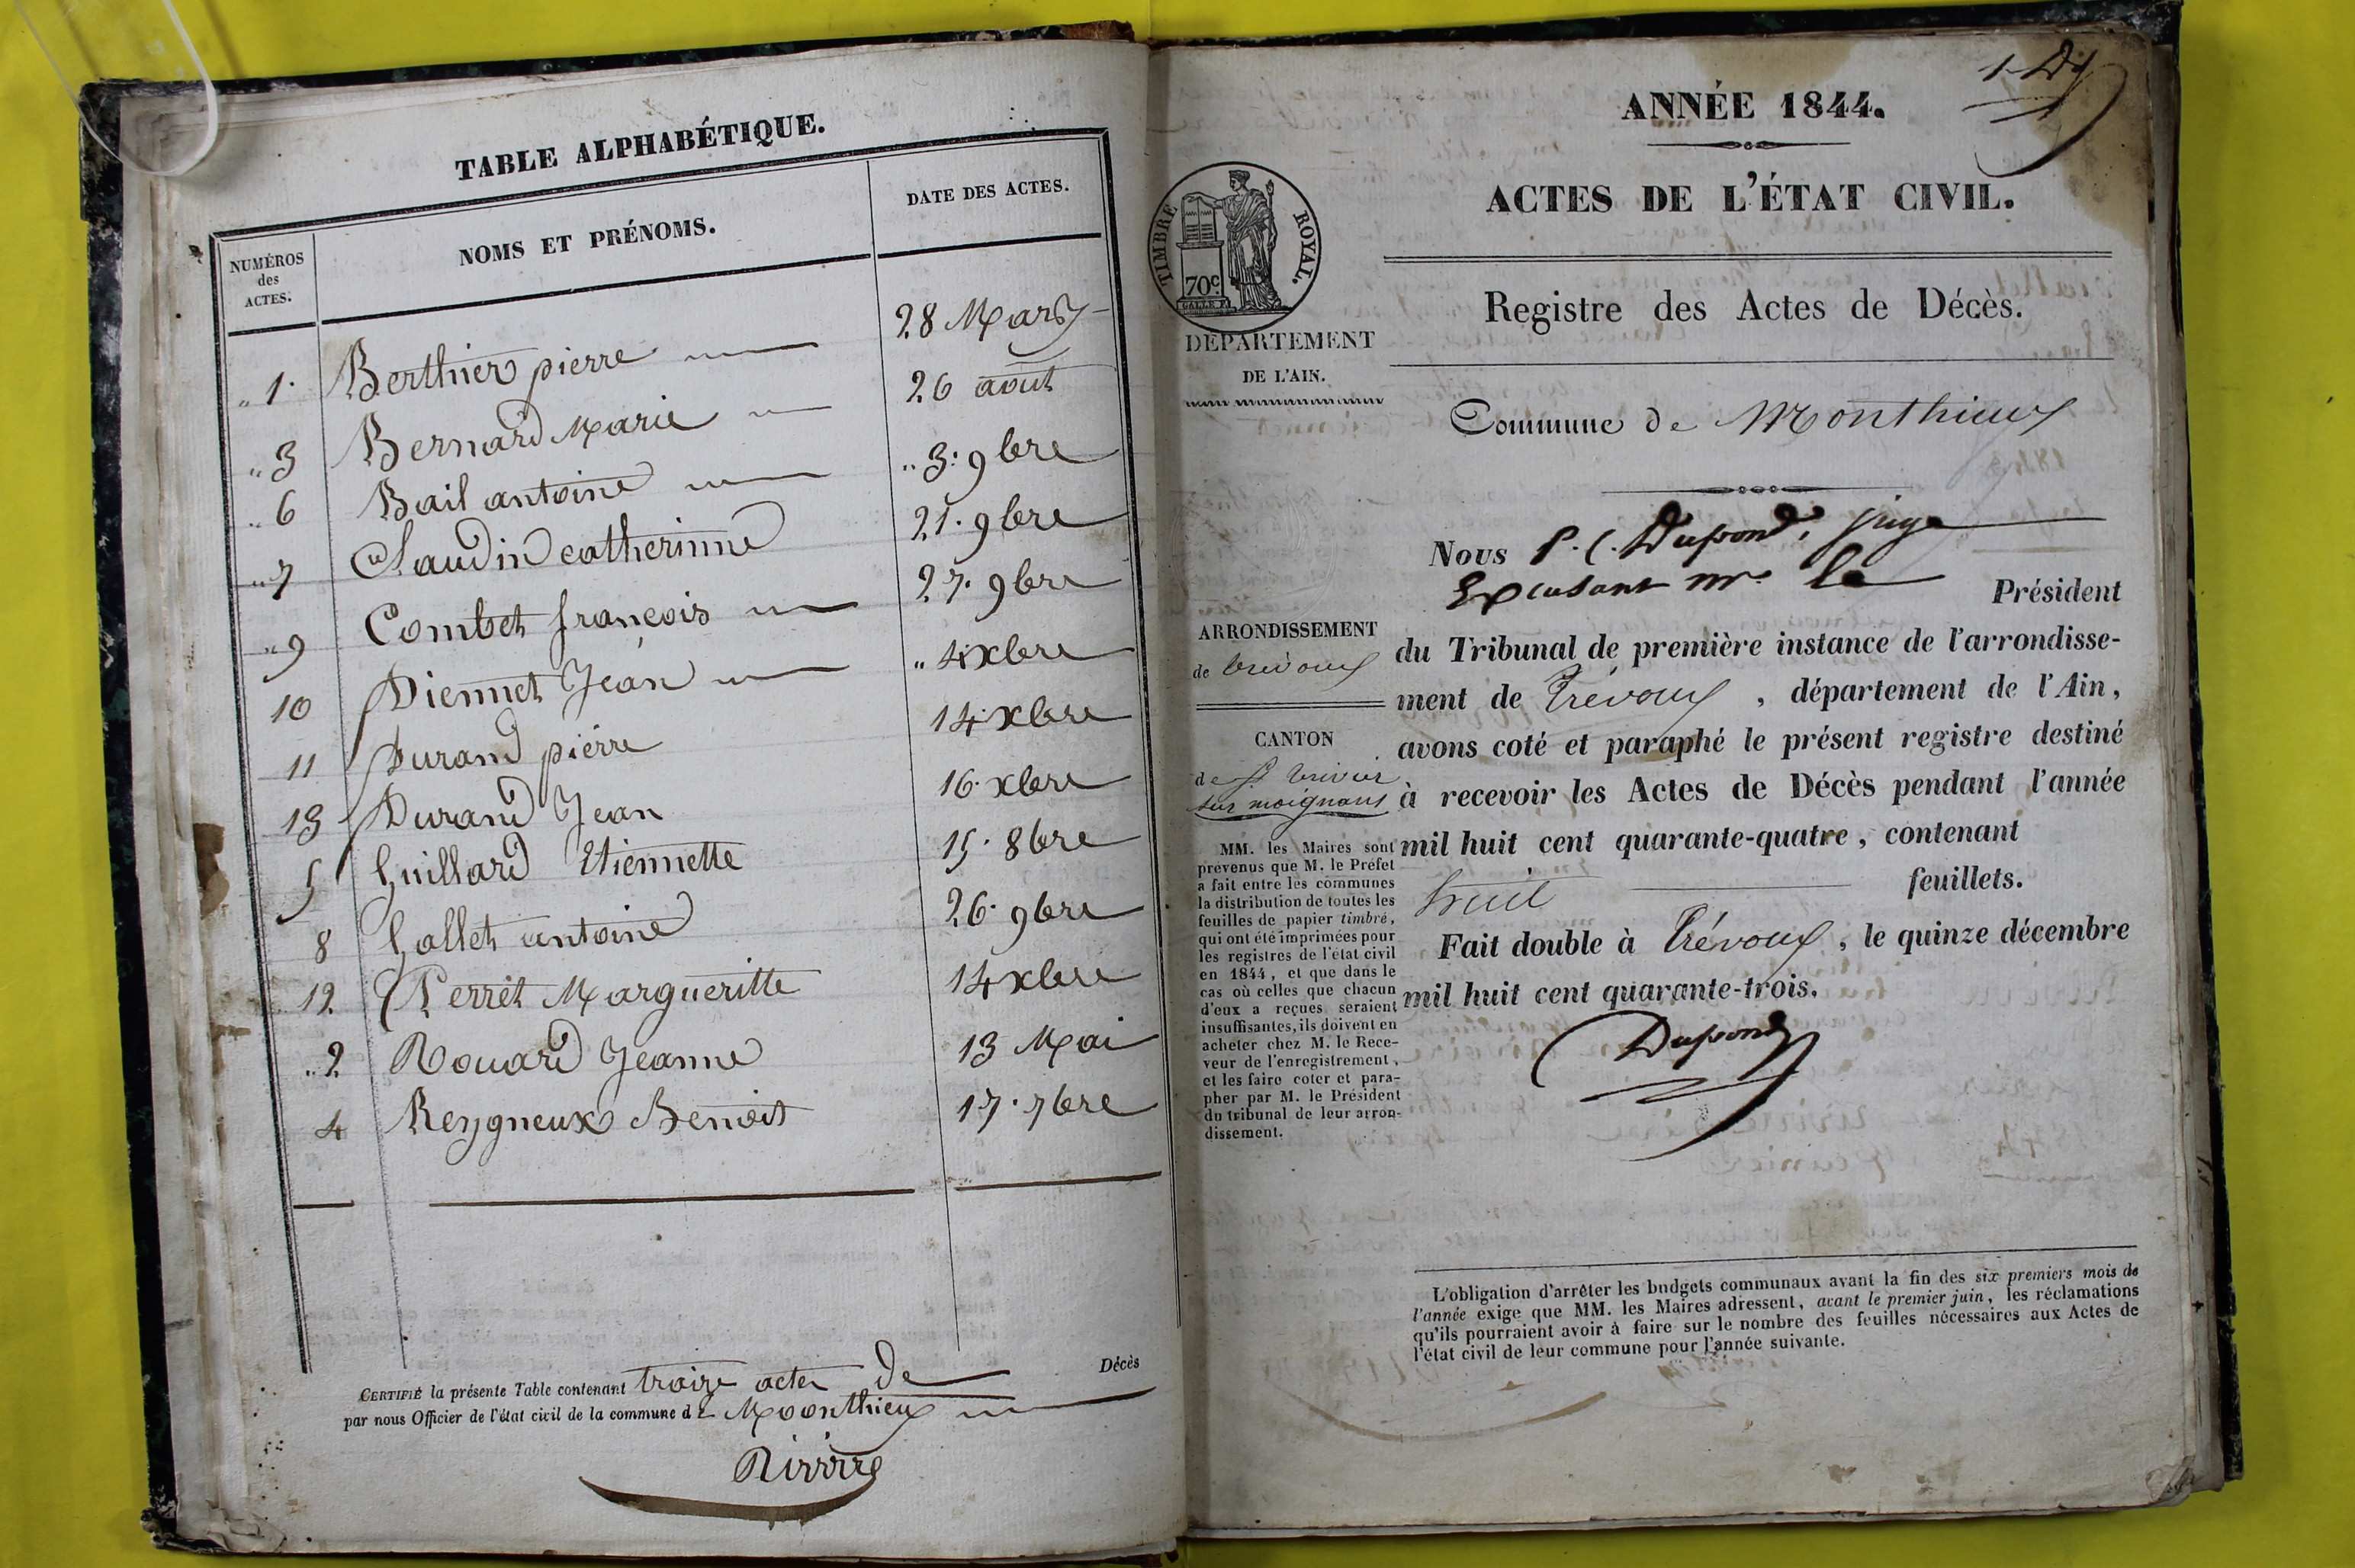 TABLE ALPHABÉTIQUE.
NUMÉROS des ACTES. NOMS ET PRÉNOMS. DATE DES ACTES.
„ 1. Berthier pierre 28 Mars
„ 3 Bernard Marie 26 aout
„ 6 Bail antoine „ 3. 9bre
„ 7 Claudin catherinne 21. 9bre
„ 9 Combet francois 27. 9bre
10 Diennet Jean „ 4 xbre
11 Durand pierre 14 xbre
13 Durand Jean 16. xbre
5 Guillard Etiennette 15. 8bre
8 Gallet antoine 26. 9bre
12 Perret Margueritte 14 xbre
„ 2 Rouard Jeanne 13 Mai
4 Reygneux Benoit 17. 7bre
CERTIFIÉ la présente Table contenant traize actes de Décès
par nous Officier de l'état civil de la commune de Moonthieux
1
ANNÉE 1844.
ACTES DE L'ÉTAT CIVIL.
TIMBRE ROYAL.
70c.
DÉPARTEMENT
DE L'AIN.
Registre des Actes de Décès.
Commune de Monthieux
Nous P. C. Dupond, juge
Excusant mr. le Président
ARRONDISSEMENT
de trévoux
CANTON
de St trivier
sur moignans
du Tribunal de première instance de l'arrondisse-
ment de Trévoux, département de l'Ain,
avons coté et paraphé le présent registre destiné
à recevoir les Actes de Décès pendant l'année
mil huit cent quarante-quatre, contenant
huit feuillets.
Fait double à Trévoux, le quinze décembre
mil huit cent quarante-trois.
Dupond
MM. les Maires sont
prévenus que M. le Préfet
a fait entre les communes
la distribution de toutes les
feuilles de papier timbré,
qui ont été imprimées pour
les registres de l'état civil
en 1844, et que dans le
cas où celles que chacun
d'eux a reçues seraient
insuffisantes, ils doivent en
acheter chez M. le Rece-
veur de l'enregistrement,
et les faire coter et para-
pher par M. le Président
du tribunal de leur arron-
dissement.
L'obligation d'arrêter les budgets communaux avant la fin des six premiers mois de
l'année exige que MM. les Maires adressent, avant le premier juin, les réclamations
qu'ils pourraient avoir à faire sur le nombre des feuilles nécessaires aux Actes de
l'état civil de leur commune pour l'année suivante.